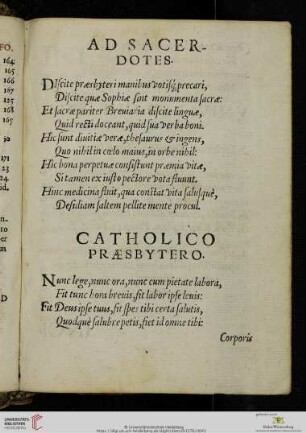 FO.
164.
165
166
167
168
165
30
171
23
AD SACER-
DOTES.
DIscite præsbyteri manibus votisq; precari,
Discite quæ Sophiæ sint monumenta sacræ:
Et sacræ pariter Breviaria discite linguæ,
Quid recti doceant, quid sua verba boni.
Hic sunt divitiæ veræ, thesaurus & ingens,
Quo nihil in cœlo maius, in orbe nihil:
Hic bona perpetuæ consistunt præmia vitæ,
Si tamen ex iusto pectore vota fluunt.
Hinc medicina fluit, qua constat vita salusquè,
Desidiam saltem pellite mente procul.
CATHOLICO
PRÆSBYTERO.
Nunc lege, nunc ora, nunc cum pietate labora,
Fit tunc hora brevis, fit labor ipse levis:
Fit Deus ipse tuus, fit spes tibi certa salutis,
Quodquè salubre petis, fiet id omne tibi:
Corporis
UNIVERSITÄTS-
BIBLIOTHEK
HEIDELBERG
© Universitätsbibliothek Heidelberg